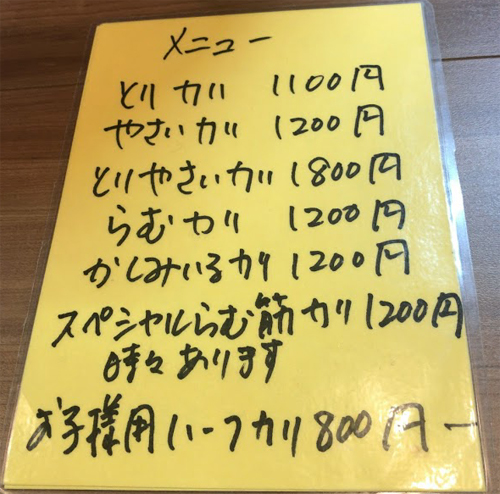 メニュー
とりカリ 1100円
やさいカリ 1200円
とりやさいカリ 1800円
らむカリ 1200円
かしみいるカリ 1200円
スペシャルらむ筋カリ 1200円
時々あります
お子様用ハーフカリ 800円ー